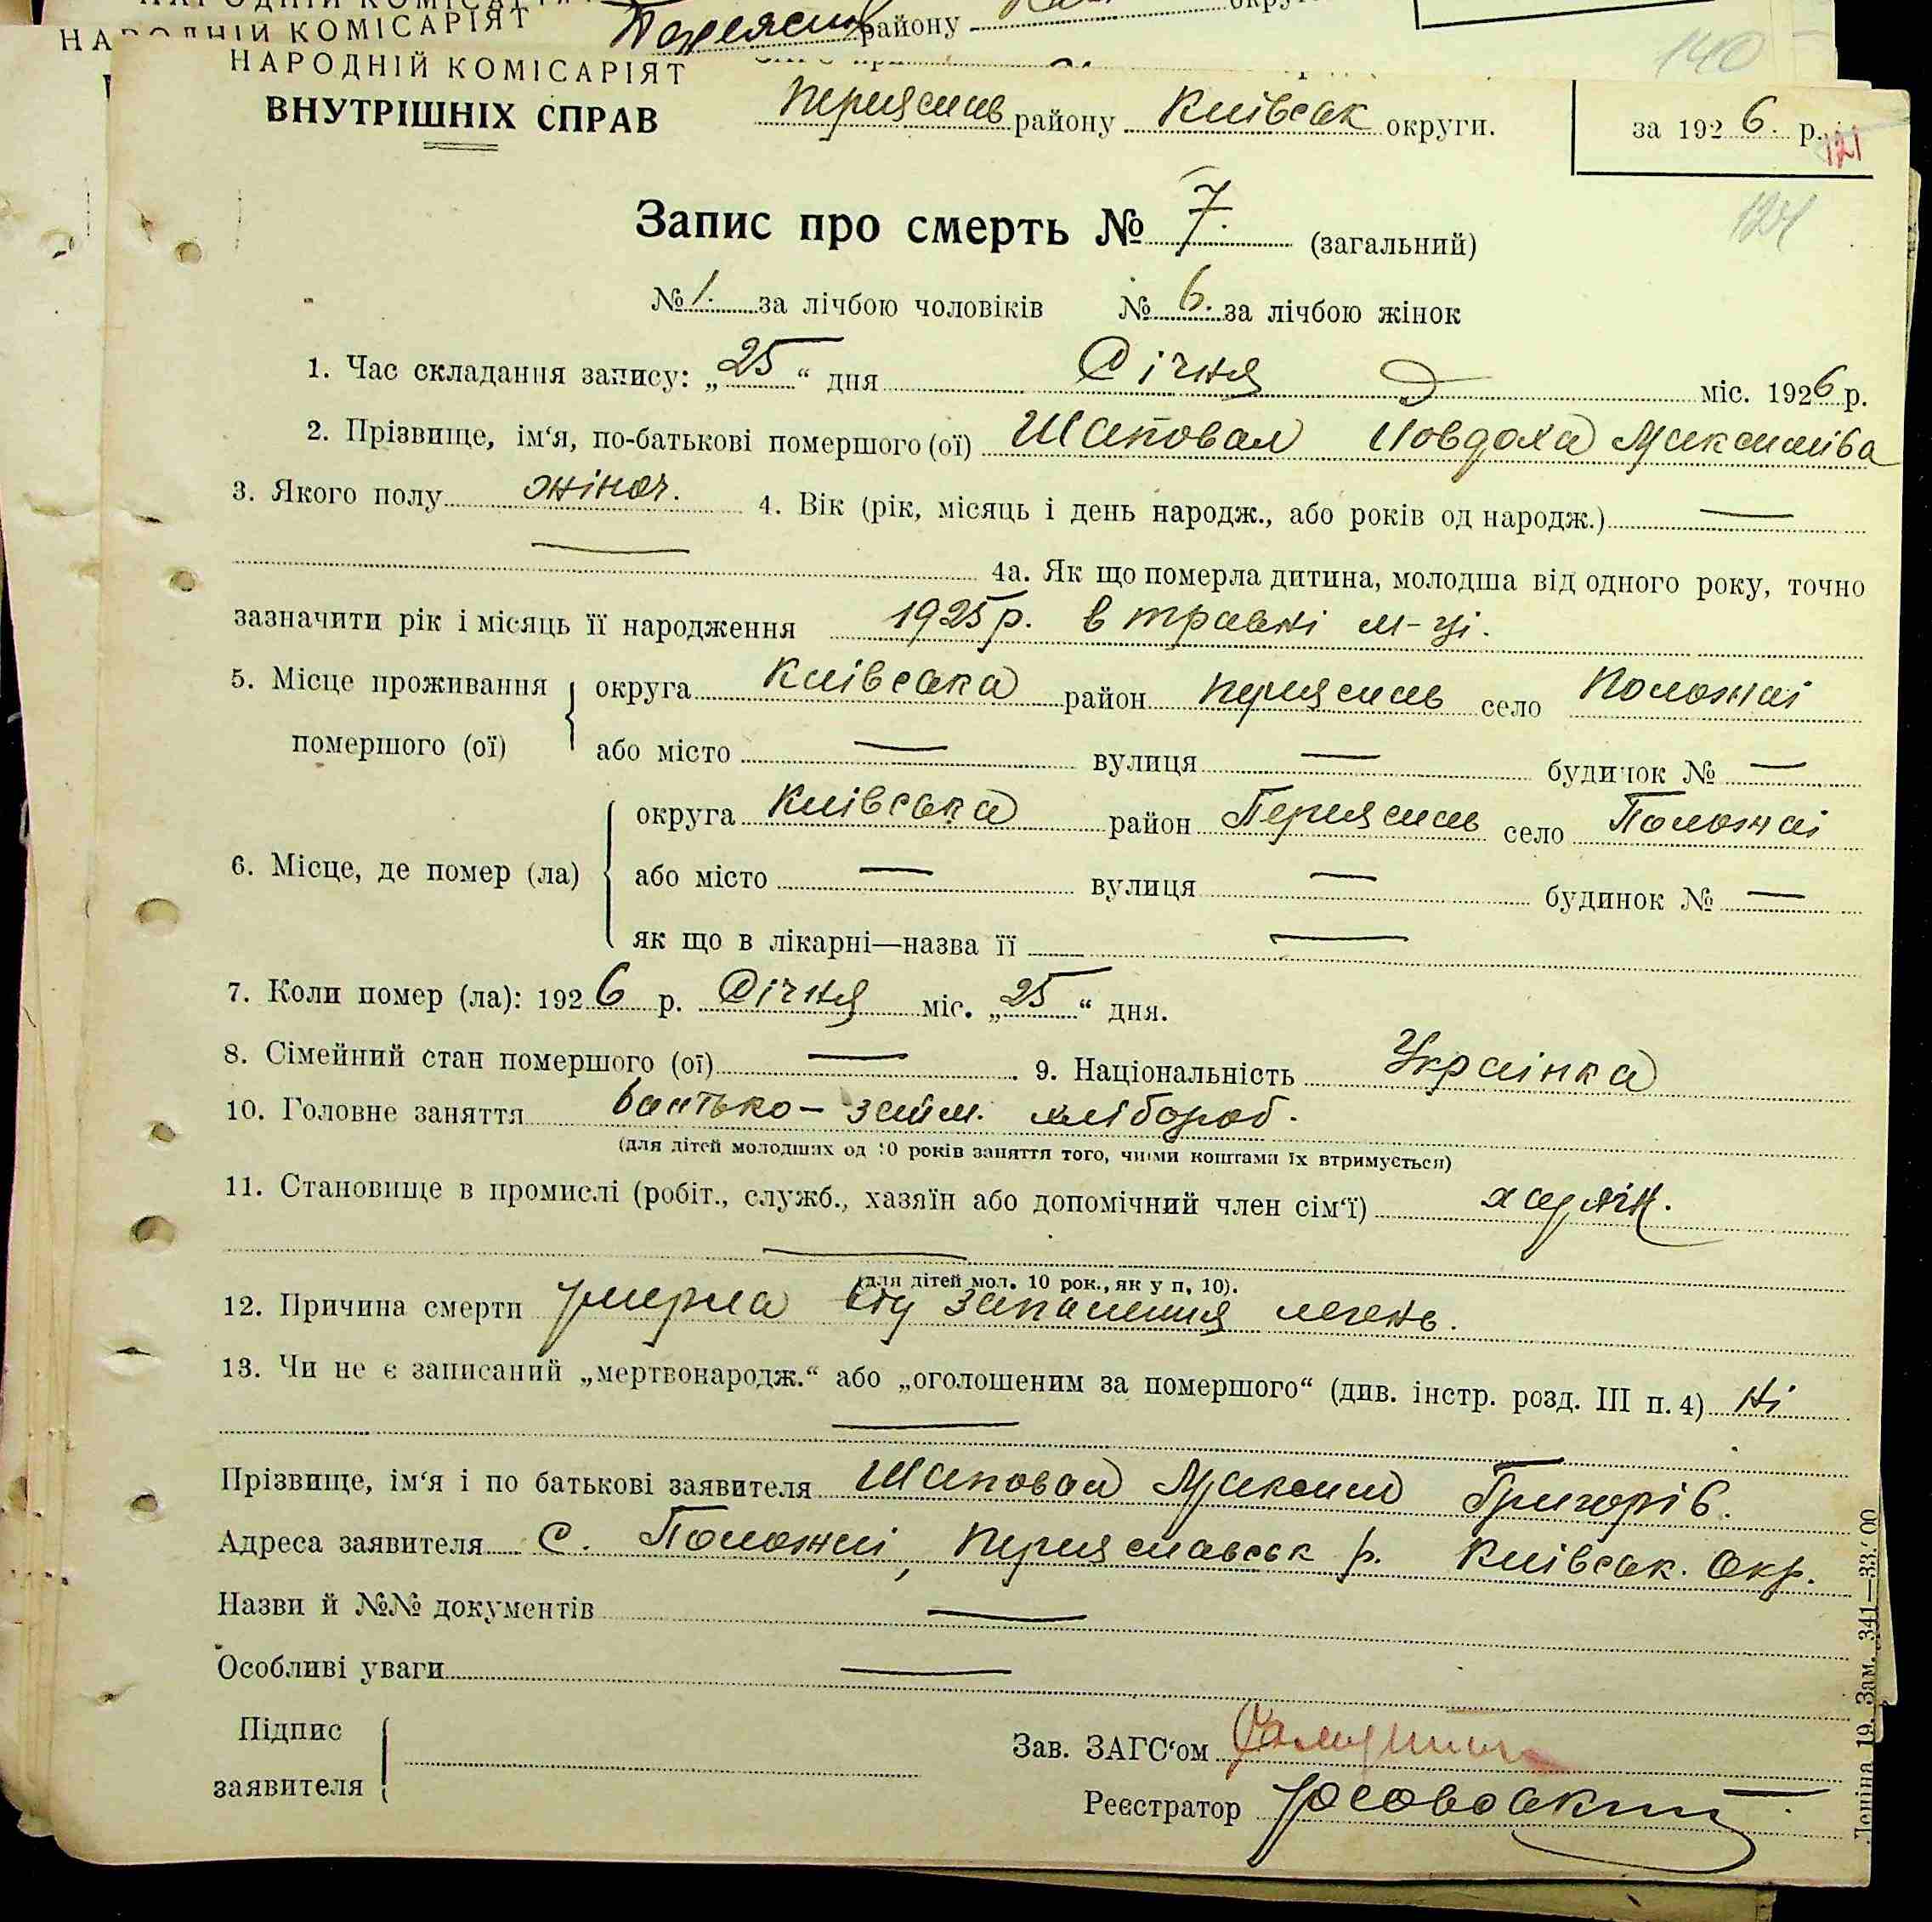 НАРОДНІЙ КОМІСАРІЯТ
району
140
НАРОДНІЙ КОМІСАРІЯТ
ВНУТРІШНІХ СПРАВ
Переяслав району Київськ округи.
за 1926. р.
121
Запис про смерть № 7. (загальний)
121
№ 1. за лічбою чоловіків № 6. за лічбою жінок
1. Час складання запису: „25“ дня Січня міс. 1926 р.
2. Прізвище, ім‘я, по-батькові помершого (ої) Шаповал Йовдоха Максимівა
3. Якого полу жіноч. 4. Вік (рік, місяць і день народж., або років од народж.) —
— 4а. Як що померла дитина, молодша від одного року, точно
зазначити рік і місяць її народження 1925 р. в травні м-ці.
5. Місце проживання помершого (ої) округа Київська район Переяслав село Положаї
або місто — вулиця — будинок № —
6. Місце, де помер (ла) округа Київська район Переяслав село Положаї
або місто — вулиця — будинок № —
як що в лікарні—назва її —
7. Коли помер (ла): 1926 р. Січня міс. „25“ дня.
8. Сімейний стан помершого (ої) — 9. Національність Українка
10. Головне заняття батько – займ. хлібороб.
(для дітей молодших од 10 років заняття того, чиїми коштами їх втримується)
11. Становище в промислі (робіт., служб., хазяїн або допомічний член сім‘ї) хазяїн.
—
(для дітей мол. 10 рок., як у п. 10).
12. Причина смерти Умерла від запалення легень.
13. Чи не є записаний „мертвонародж.“ або „оголошеним за помершого“ (див. інстр. розд. III п. 4) Ні
—
Прізвище, ім‘я і по батькові заявителя Шаповал Максим Григорів.
Адреса заявителя С. Положаї, Переяславськ р. Київськ. Окр.
Назви й №№ документів —
Особливі уваги —
Підпис заявителя
Зав. ЗАГС‘ом
Реєстратор
Леніна 19. Зам. 341—33.000